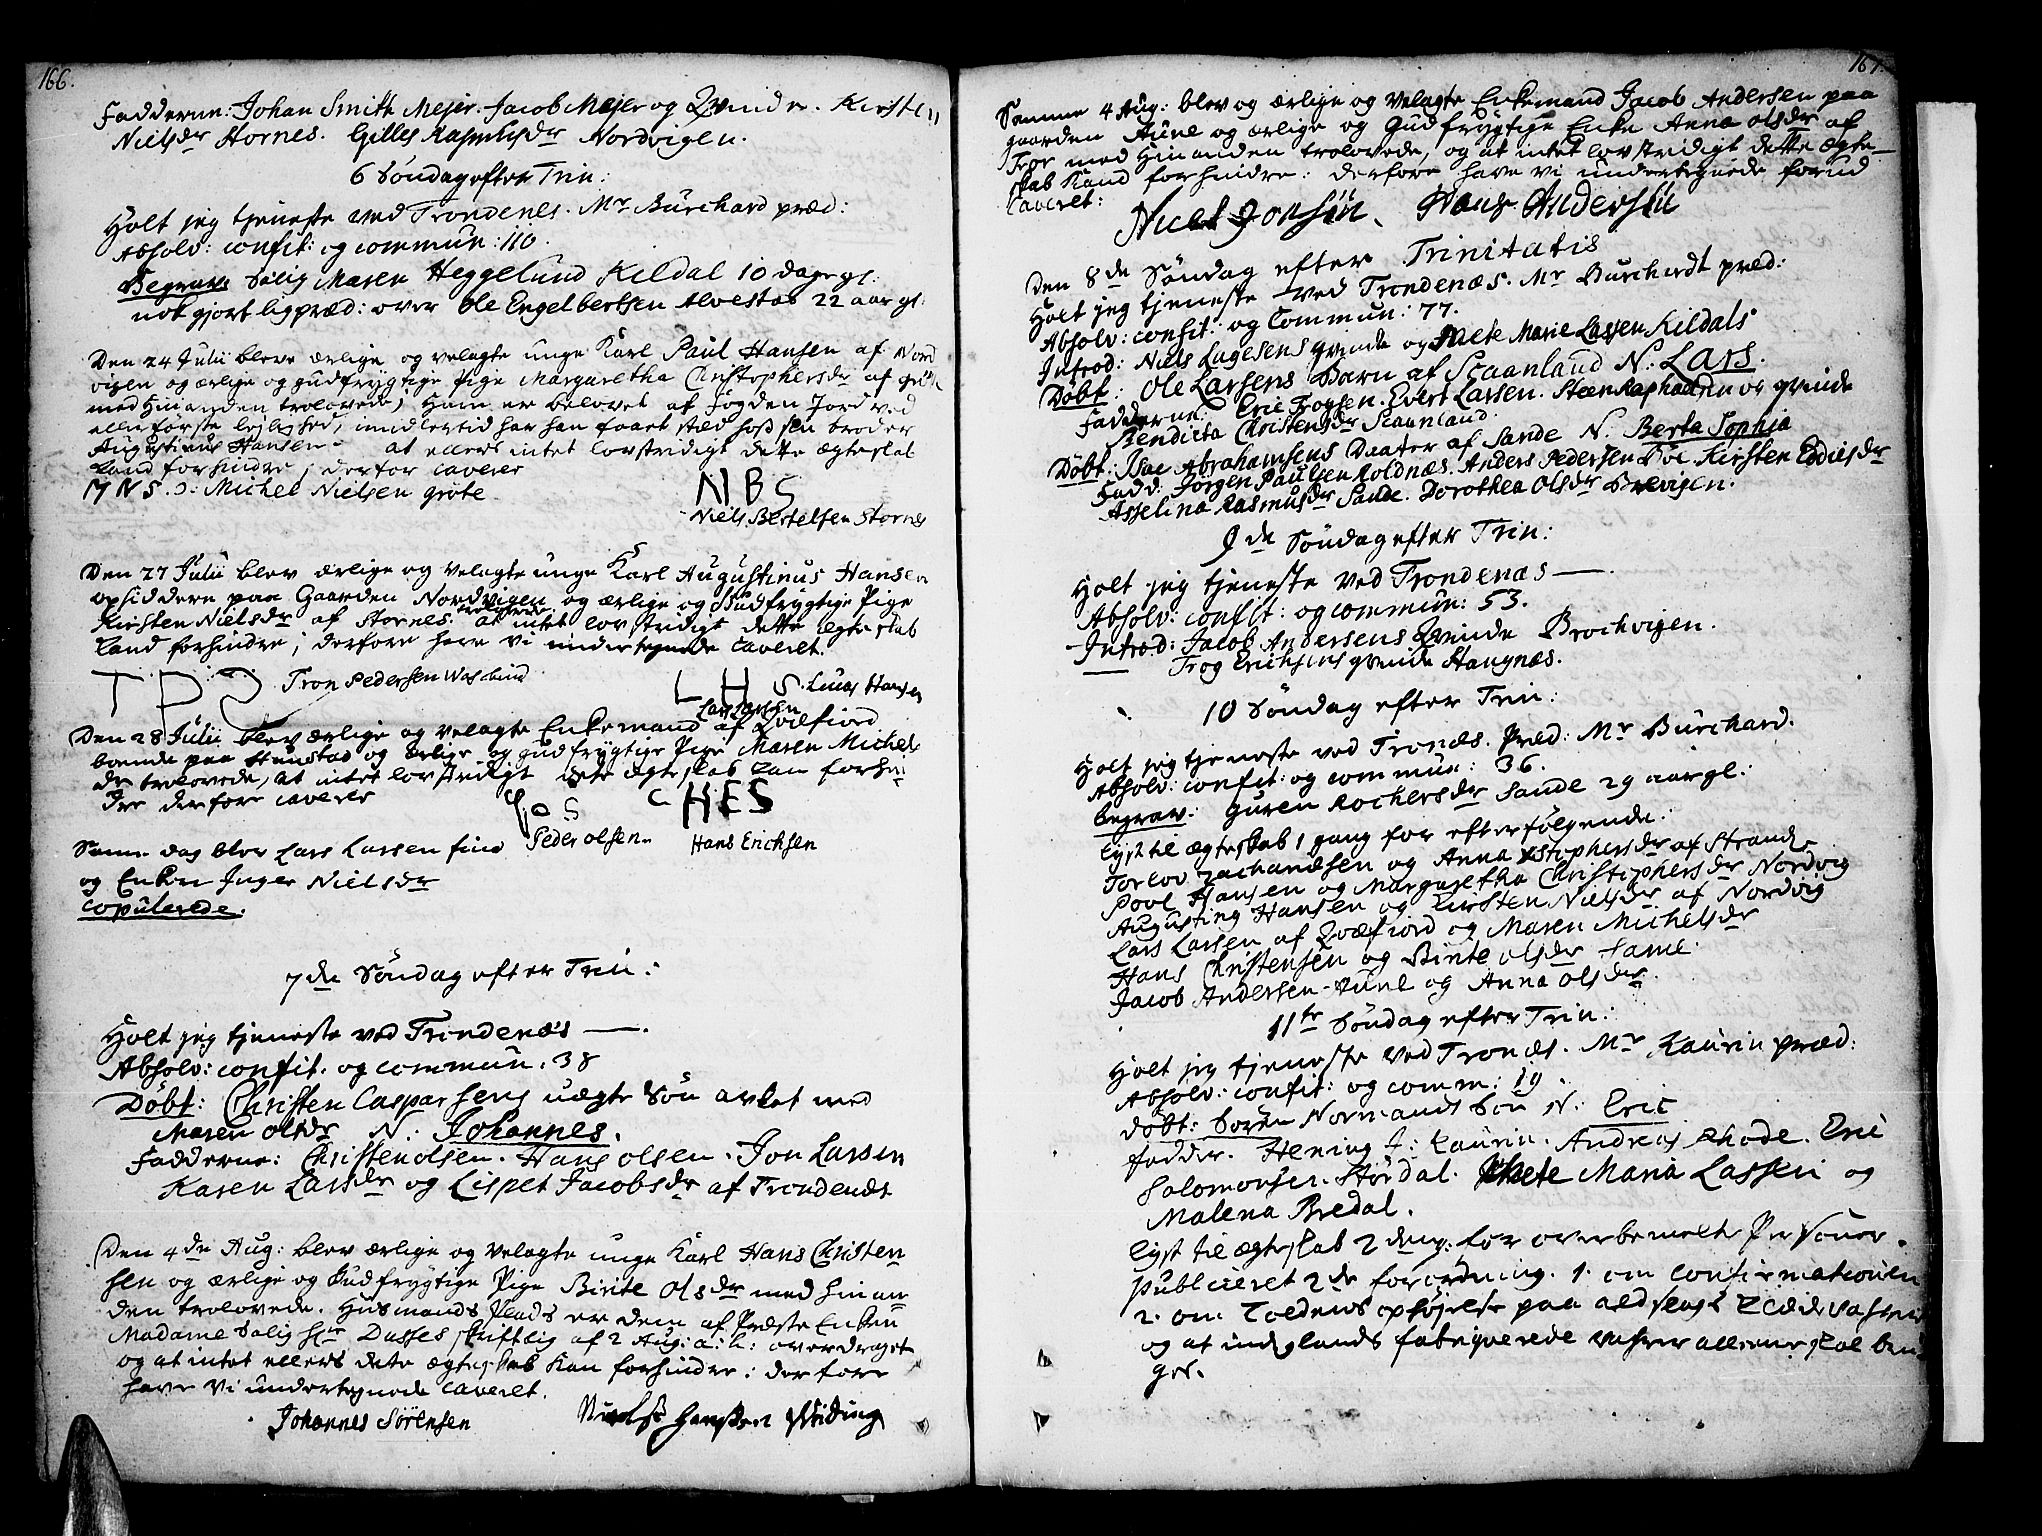 166.
Fadderne: Johan Smith Mejer. Jacob Mejer og Qvinder. Kirsten
Nielsdr Stornes. Gilles Rasmusdr Nordvigen.
6 Söndag efter Trin:
Holt jeg tjeneste ved Trondenes. Mr Burchard præd:
Absolv: confit: og commun: 110.
Begrav: Salig Maren Heggelund Kildal 10 dage gl:
nok gjort ligpræd: over Ole Engelbertsen Alvestad 22 aar gl:
Den 24 Julii bleve ærlige og velagte unge Karl Paul Hansen af Nord
vigen og ærlige og gudfrygtige Pige Margaretha Christophersdr af
med hinanden trolovede, Ham er belovet af Fogden Jord ved
aller förste lejlighed, imidlertid har han faaet stæd hoss sin broder
Augustinus Hansen at ellers intet lovstridigt dette ægteskab
kand forhindre; derfor caverer
MNS. Michel Nielsen gröte
NBS
Niels Bertelsen Stornes
Den 27 Julii blev ærlige og velagte unge Karl Augustinus Hansen
opsiddere paa Gaarden Nordvigen og ærlige og Gudfrygtige Pige
Kirsten Nielsdr af Stornes trolovede at intet lovstridigt dette ægteskab
kand forhindre; derfore have vi undertegnede caveret.
T P S Tron Pedersen
L H S. Lucas Hansen
Lars Larsen
Den 28 Julii blev ærlige og velagte Enkemand af Qvæfiord
boende paa Stunstad og ærlige og gudfrygtige Pige Maren Michels
dr trolovede, at intet lovstridigt dete ægteskab kan forhin
dre derfore caverer
P o S
Peder Olsen
HES
Hans Erichsen
Samme dag blev Lars Larsen
og Enken Inger Nielsdr
copulerede.
7de Söndag efter Trin:
Holt jeg tjeneste ved Trondenæs —.
Absolv: confit. og commun: 38
Döbt: Christen Caspersens uægte Sön avlet med
Maren Olsdr N: Johannes.
Fadderne: Christen Olsen. Hans Olsen. Jon Larsen
Karen Larsdr og Lispet Jacobsdr af Trondenæs
Den 4de Aug: blev ærlige og velagte unge Karl Hans Christen
sen og ærlige og Gudfrygtige Pige Birite Olsdr med hinan
den trolovede. Husmands Plads er dem af Præste Enken
Madame Salig Hr Dasses skriftlig af 2 Aug: a: h: overdraget
og at intet ellers dete ægteskab kan forhindre: derfore
have vi undertegnede caveret.
Johannes Sörensen
167.
Samme 4 Aug: blev og ærlige og velagte Enkemand Jacob Andersen paa
gaarden Aune og ærlige og Gudfrygtige Enke Anna Olsdr af
Tor med hinanden trolovede, og at intet lovstridigt dette ægte-
skab kand forhindre: derfore have vi undertegnede forud
caveret:
Niels Jonsön. Hans Andersön
Den 8de Söndag efter Trinitatis
Holt jeg tjeneste ved Trondenæs. Mr Burchardt præd:
Absolv: confit: og Commun: 77.
Introd: Niels Lagesens qvinde og Mete Marie Lassen Kildals
Döbt: Ole Larsens Barn af Scaanland N: Lars.
Fadderne: Eric Trogsen. Evert Larsen. Steen Raphaelsen og qvinde
Bendicta Christensdr Scaanland
Döbt: Isac Abrahamsens Daater af Sande N. Berta Sophia
Fadd: Jörgen Paulsen Roldnæs. Anders Pedersen Kirsten Eddisdr
Asselina Rasmusdr Sande. Dorothea Olsdr Brevigen.
9de Söndag efter Trin:
Holt jeg tjeneste ved Trondenæs —.
Absolv: confit: og commun: 53.
Introd: Jacob Andersens Qvinde Brochvigen.
Trog Erichsens qvinde Haugnæs.
10 Söndag efter Trin:
Holt jeg tjeneste ved Tronæs. Præd: Mr Burchard.
Absolv: confit: og commun: 36.
Begrav: Guren Rochersdr Sande 29 aar gl:
Lyst til ægteskab 1 gang for efterfölgende.
Torlov Zachariæsen og Anna Xstophersdr af Strand
Povl Hansen og Margaretha Christophersdr Nordvig
Augusting Hansen og Kirsten Nielsdr af Nordvig
Lars Larsen af Qvæfiord og Maren Michelsdr
Hans Christensen og Birite Olsdr Same.
Jacob Andersen Aune og Anna Olsdr.
11te Söndag efter Trin:
Holt jeg tjeneste ved Tronæs. Mr Kaurin præd:
Absolv: confit: og comm: 19.
Döbt: Sören Normands Sön N: Eric
Fadder. Hening J: Kaurin. Andreas Rhode. Eric
Solomonsen. Stördal. Mete Maria Lassen og
Malena Bredal.
Lyst til ægteskab 2den g: for overbemelte Personer.
Publiceret 2de forordning. 1. om Confirmationen
2. om Toldens ophöjelse paa
og at indlands fabriqverede vahrer allene skal bru
ges.